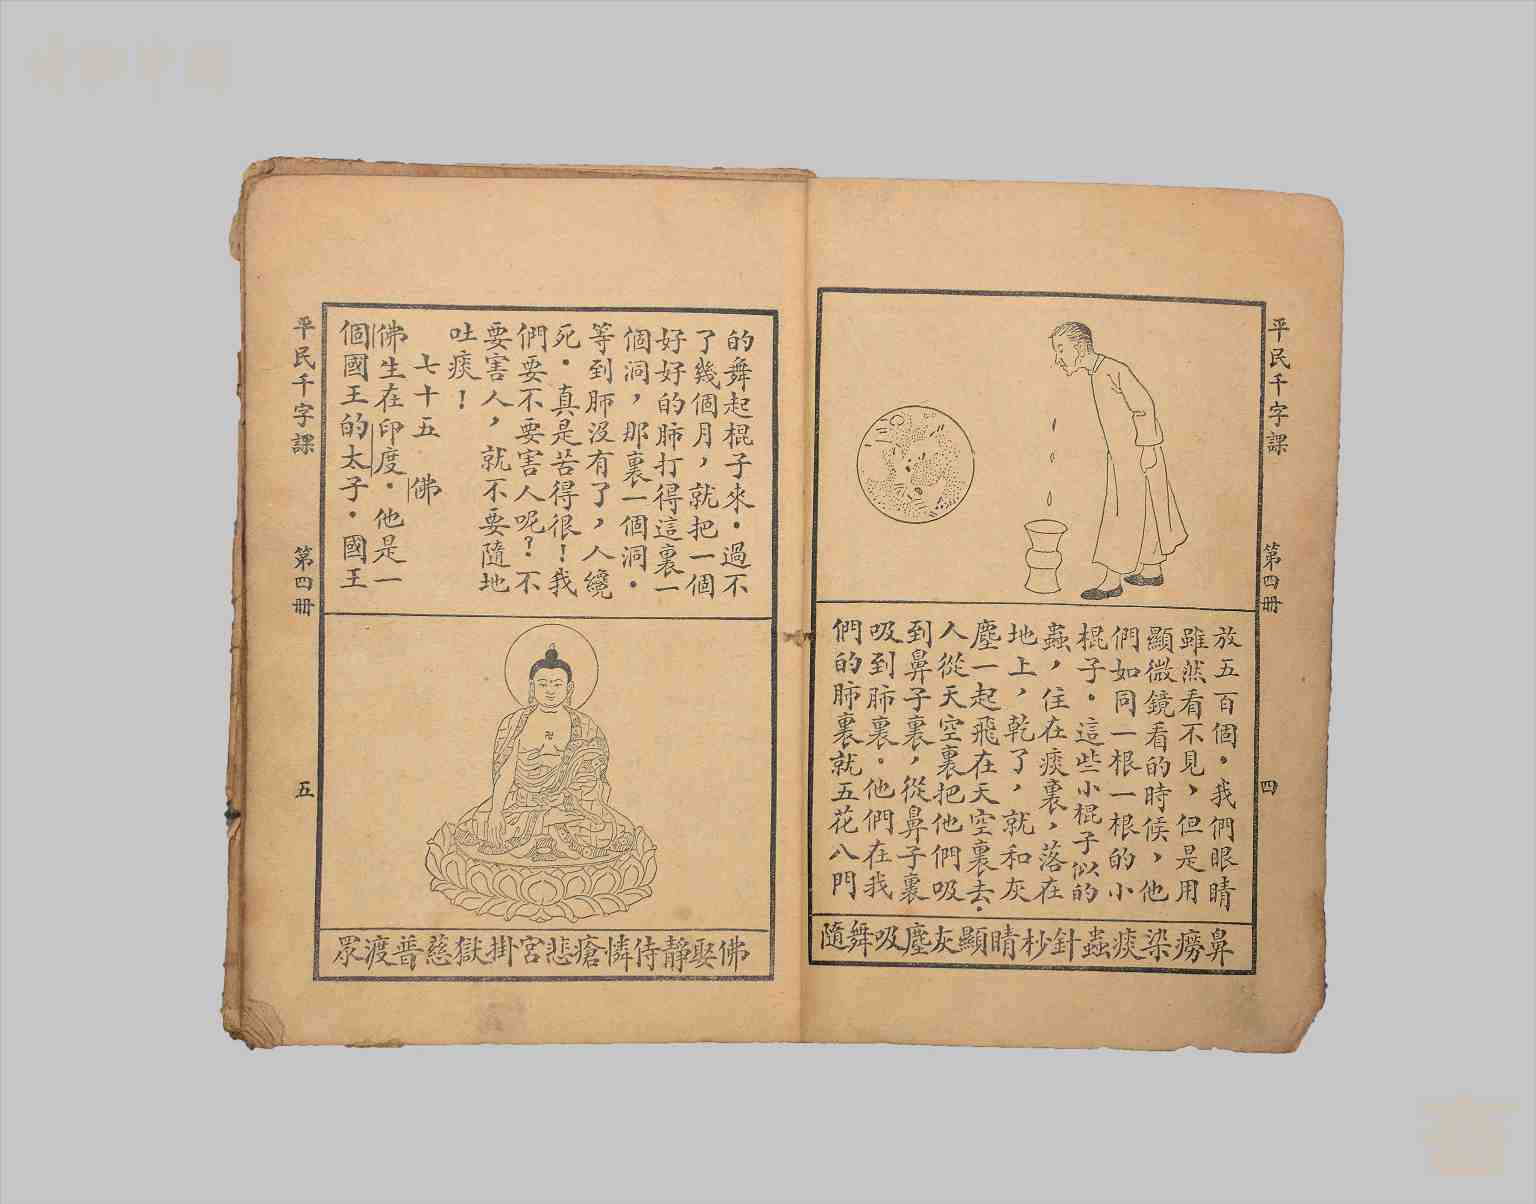 平民千字課
第四册
四
放五百個。我們眼睛
雖然看不見，但是用
顯微鏡看的時候，他
們如同一根一根的小
棍子。這些小棍子似的
蟲，住在痰裏，落在
地上，乾了，就和灰
塵一起飛在天空裏去。
人從天空裏把他們吸
到鼻子裏，從鼻子裏
吸到肺裏。他們在我
們的肺裏就五花八門
鼻癆染痰蟲針杪睛顯灰塵吸舞隨
的舞起棍子來。過不
了幾個月，就把一個
好好的肺打得這裏一
個洞，那裏一個洞。
等到肺沒有了，人纔
死。真是苦得很！我
們要不要害人呢？不
要害人，就不要隨地
吐痰！
七十五 佛
佛生在印度。他是一
個國王的太子。國王
佛娶靜侍憐瘡悲宮掛獄慈普渡眾
平民千字課
第四册
五